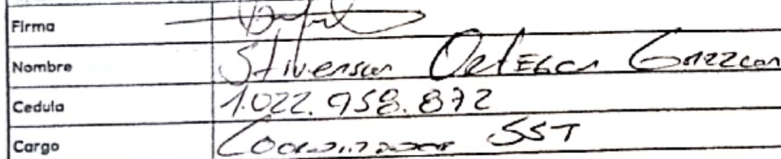 Firma
Nombre Stivenson Ortega Garzon
Cedula 1.022.958.872
Cargo Coordinador SST